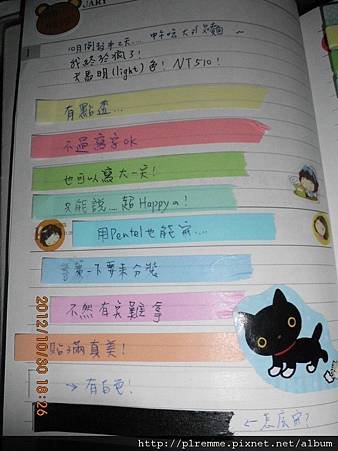 UARY
1
10月倒數第二天... 中午吃大乾麵~
我終於瘋了!
天昌明(light)色! NT510!
有點透...
不過寫字OK
也可以寫大一點!
只能說...超Happy a!
用Pentel也能寫...
等一下要來分裝
不然有夠難拿
貼滿真美!
→有白色!
←怎麼寫?
2012/10/30 18:26
http://plremme.pixnet.net/album